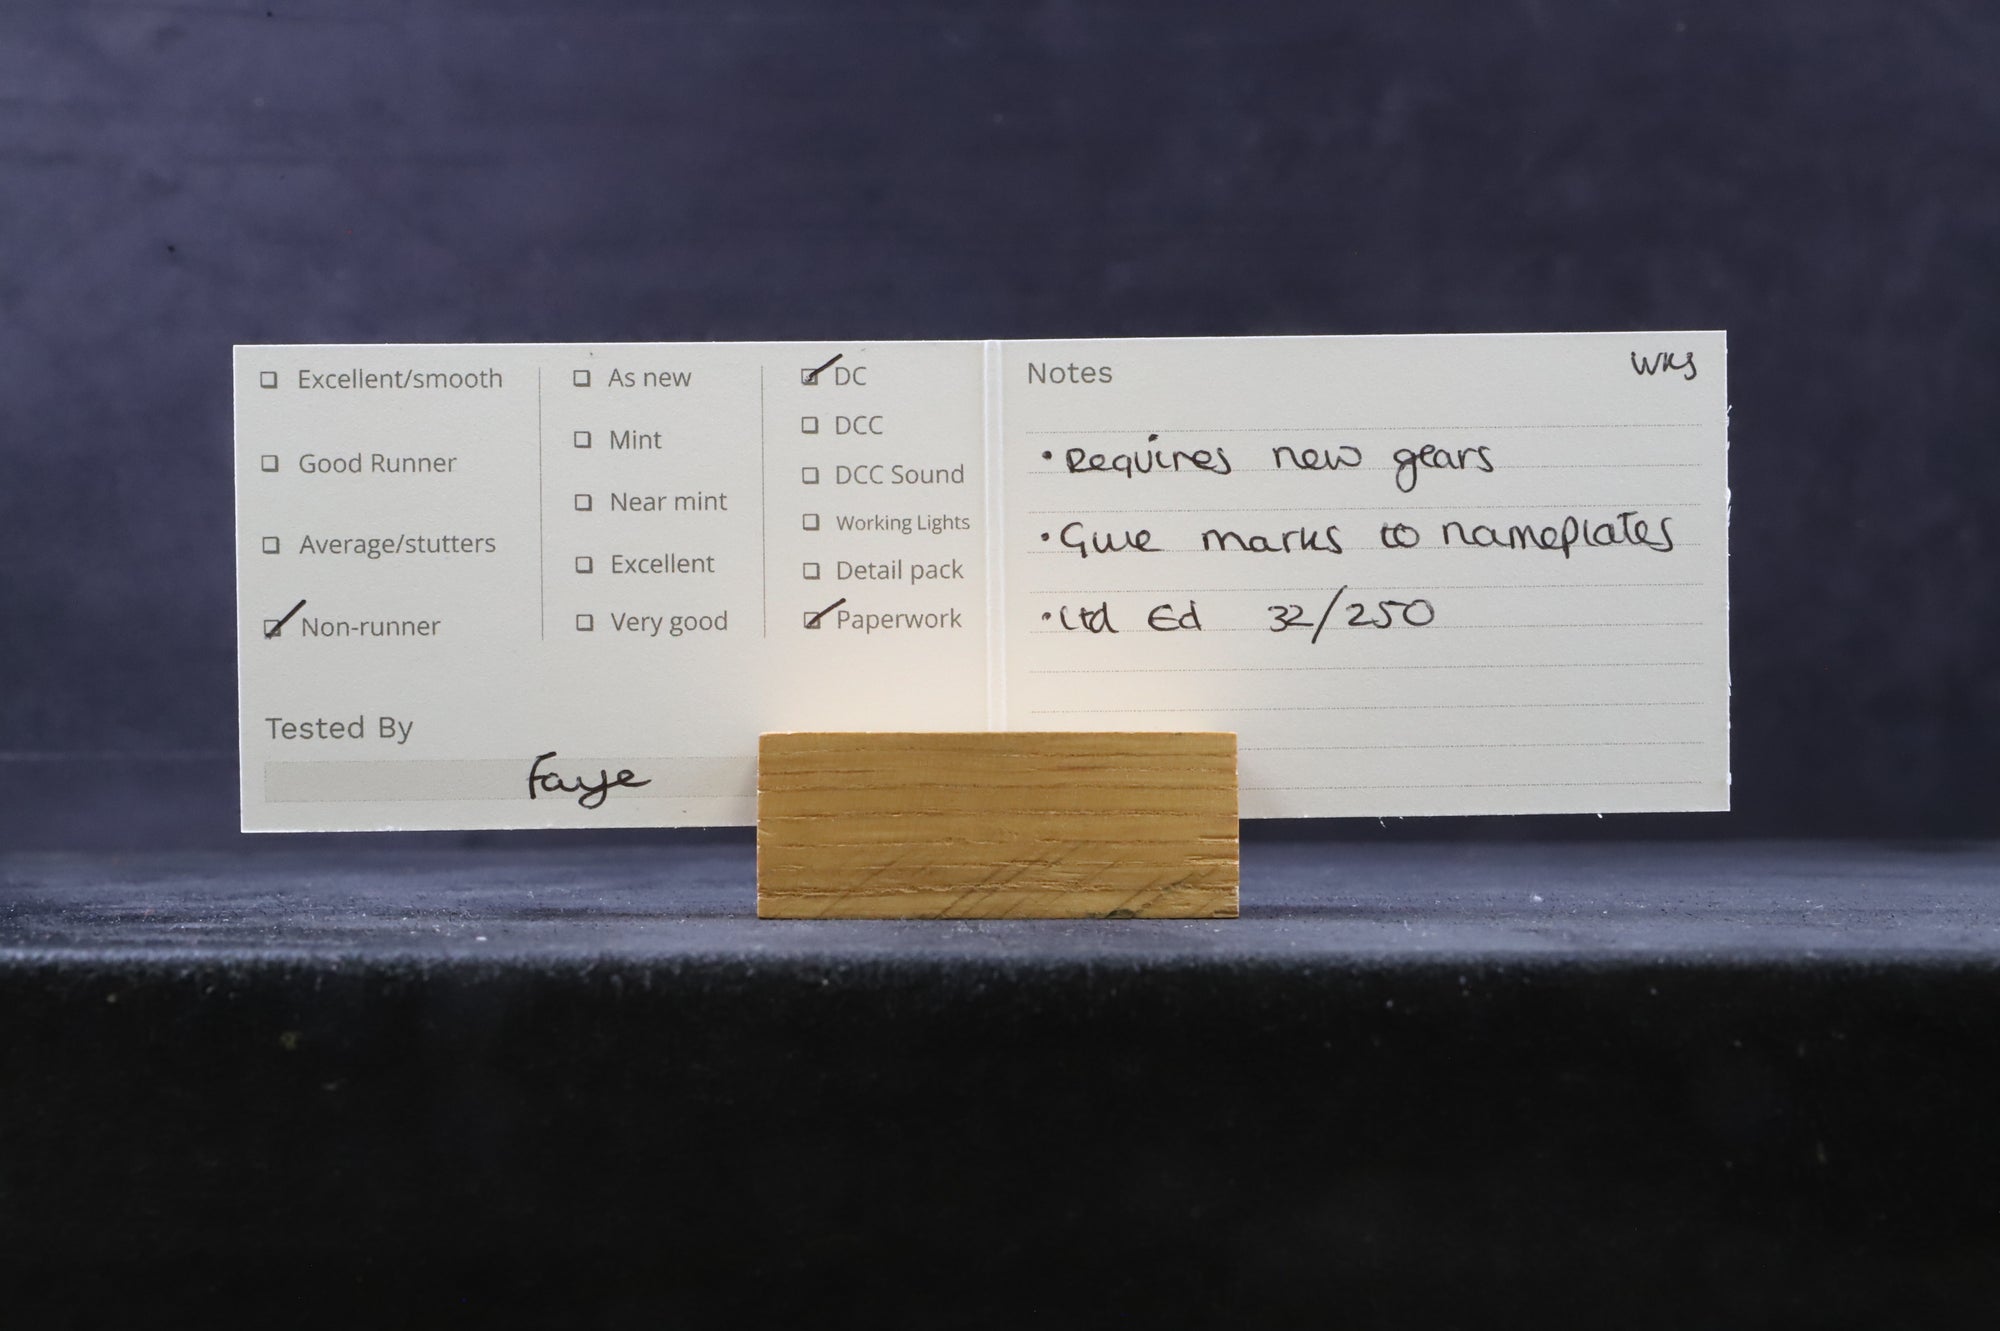 Excellent/smooth
Good Runner
Average/stutters
Non-runner
As new
Mint
Near mint
Excellent
Very good
DC
DCC
DCC Sound
Working Lights
Detail pack
Paperwork
Tested By
Faye
Notes
WKS
• Requires new gears
• Glue marks to nameplates
• Ltd Ed 32/250